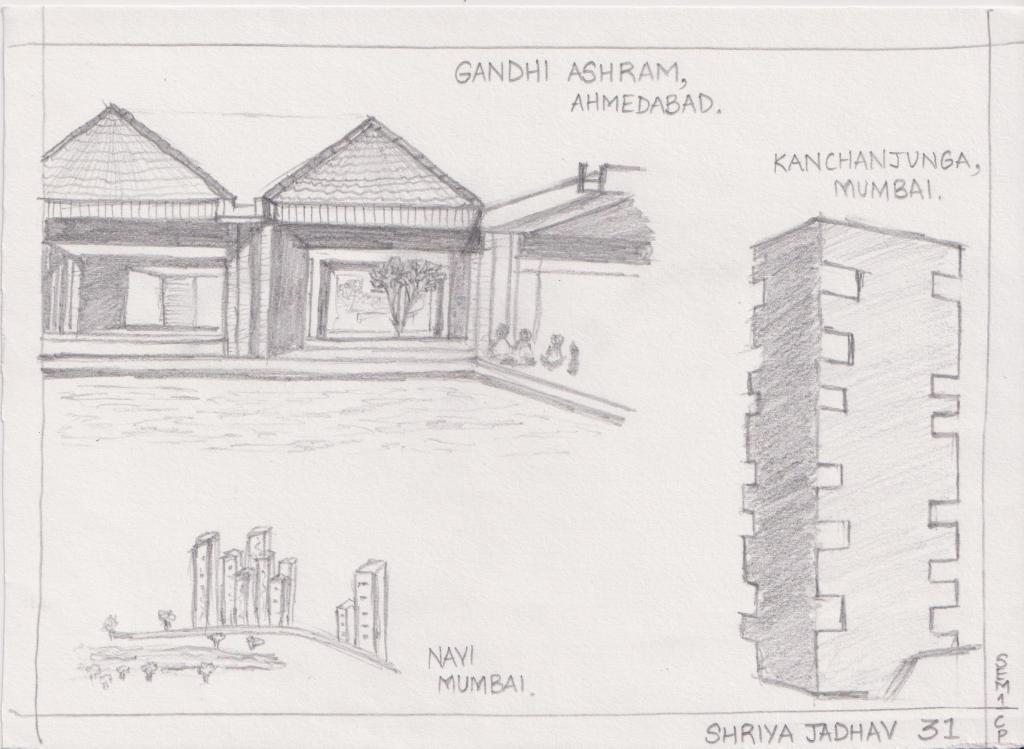 GANDHI ASHRAM,
AHMEDABAD.
KANCHANJUNGA,
MUMBAI.
NAVI
MUMBAI.
SHRIYA JADHAV 31
SEM 1 CP